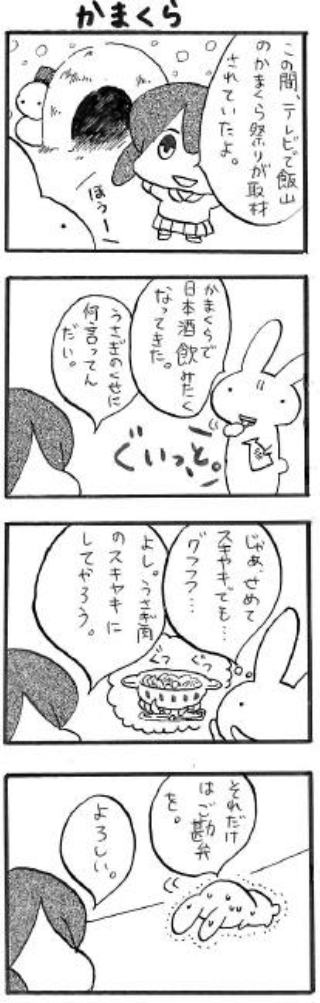 かまくら
この間、テレビで飯山
のかまくら祭りが取材
されていたよ。
ほうー
かまくらで
日本酒飲みたく
なってきた。
うさぎのくせに
何言ってん
だい。
ぐいっと。
じゃあ、せめて
スキヤキでも…
グフフフ…
ぐつ
ぐつ
よし。うさぎ肉
のスキヤキに
してやろう。
それだけ
はご勘弁
を。
よろしい。